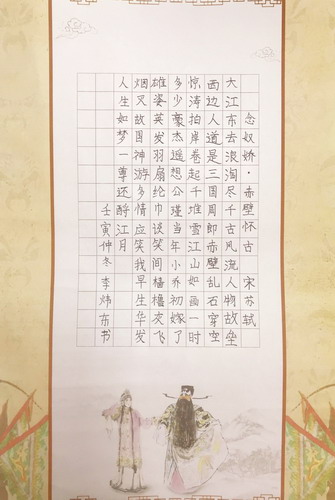 念奴娇·赤壁怀古 宋苏轼
大江东去浪淘尽千古风流人物故垒
西边人道是三国周郎赤壁乱石穿空
惊涛拍岸卷起千堆雪江山如画一时
多少豪杰遥想公瑾当年小乔初嫁了
雄姿英发羽扇纶巾谈笑间樯橹灰飞
烟灭故国神游多情应笑我早生华发
人生如梦一尊还酹江月
壬寅仲冬 李炜东书